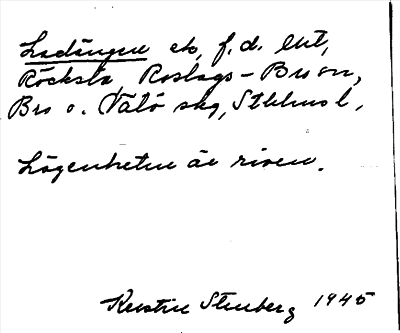 Ladängen eb, f.d. lht,
Röcksta Roslags-Bro sn,
Bro o. Vätö skg, Sthlms l,
Lägenheten är riven.
Kerstin Stenberg 1945